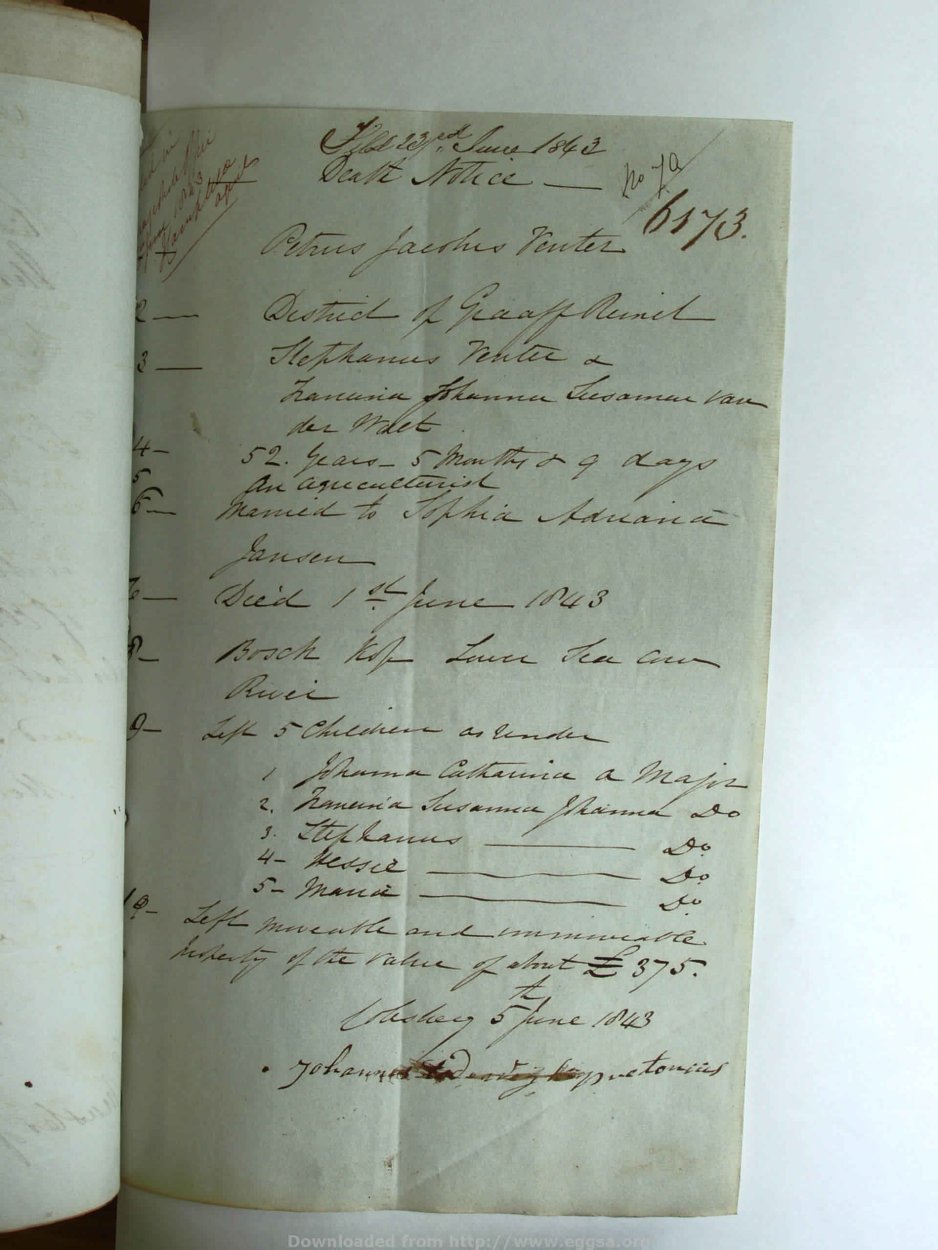 Filed 23rd June 1843
Death Notice —
No 79
6173.
1843
Petrus Jacobus Venter
2 — District of Graaff Reinet
3 — Stephanus Venter &
Francina Johanna Susanna van
der Walt
4 - 52. Years - 5 Months & 9 days
5 An agriculturist
6 — Married to Sophia Adriana
Jansen
7 — Died 1st June 1843
8 - Bosch Kop Lower Sea Cow
River
9 - Left 5 Children as under
1 Johanna Catharina a Major
2. Francina Susanna Johanna Do
3. Stephanus — Do
4 - Hessie — Do
5 - Maria — Do
10 - Left moveable and immoveable
property of the value of about £375.
Colesberg 5th June 1843
Johannes
Downloaded from http://www.eggsa.org